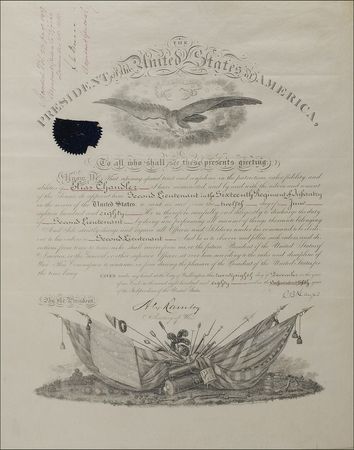 THE
PRESIDENT of the United States of AMERICA,
To all who shall see these presents greeting:
Know Ye, That reposing special trust and confidence in the patriotism, valor, fidelity and
abilities of Elias Chandler, I have nominated, and by and with the advice and consent
of the Senate do appoint him Second Lieutenant in the Sixteenth Regiment of Infantry
in the service of the United States: to rank as such from the twelfth day of June
eighteen hundred and eighty. He is therefore carefully and diligently to discharge the duty
of Second Lieutenant by doing and performing all manner of things thereunto belonging.
And I do strictly charge and require all Officers and Soldiers under his command to be obedient
to his orders as Second Lieutenant. And he is to observe and follow such orders and directions
from time to time, as he shall receive from me, or the future President of the United States of
America, or the General or other superior Officers set over him, according to the rules and discipline of
War. This Commission to continue in force during the pleasure of the President of the United States for
the time being.
GIVEN under my hand at the City of Washington this day of December in the year
of our Lord one thousand eight hundred and eighty and in the fifth year
of the Independence of the United States.
By the President,
R B Hayes
Alex Ramsey
Secretary of War